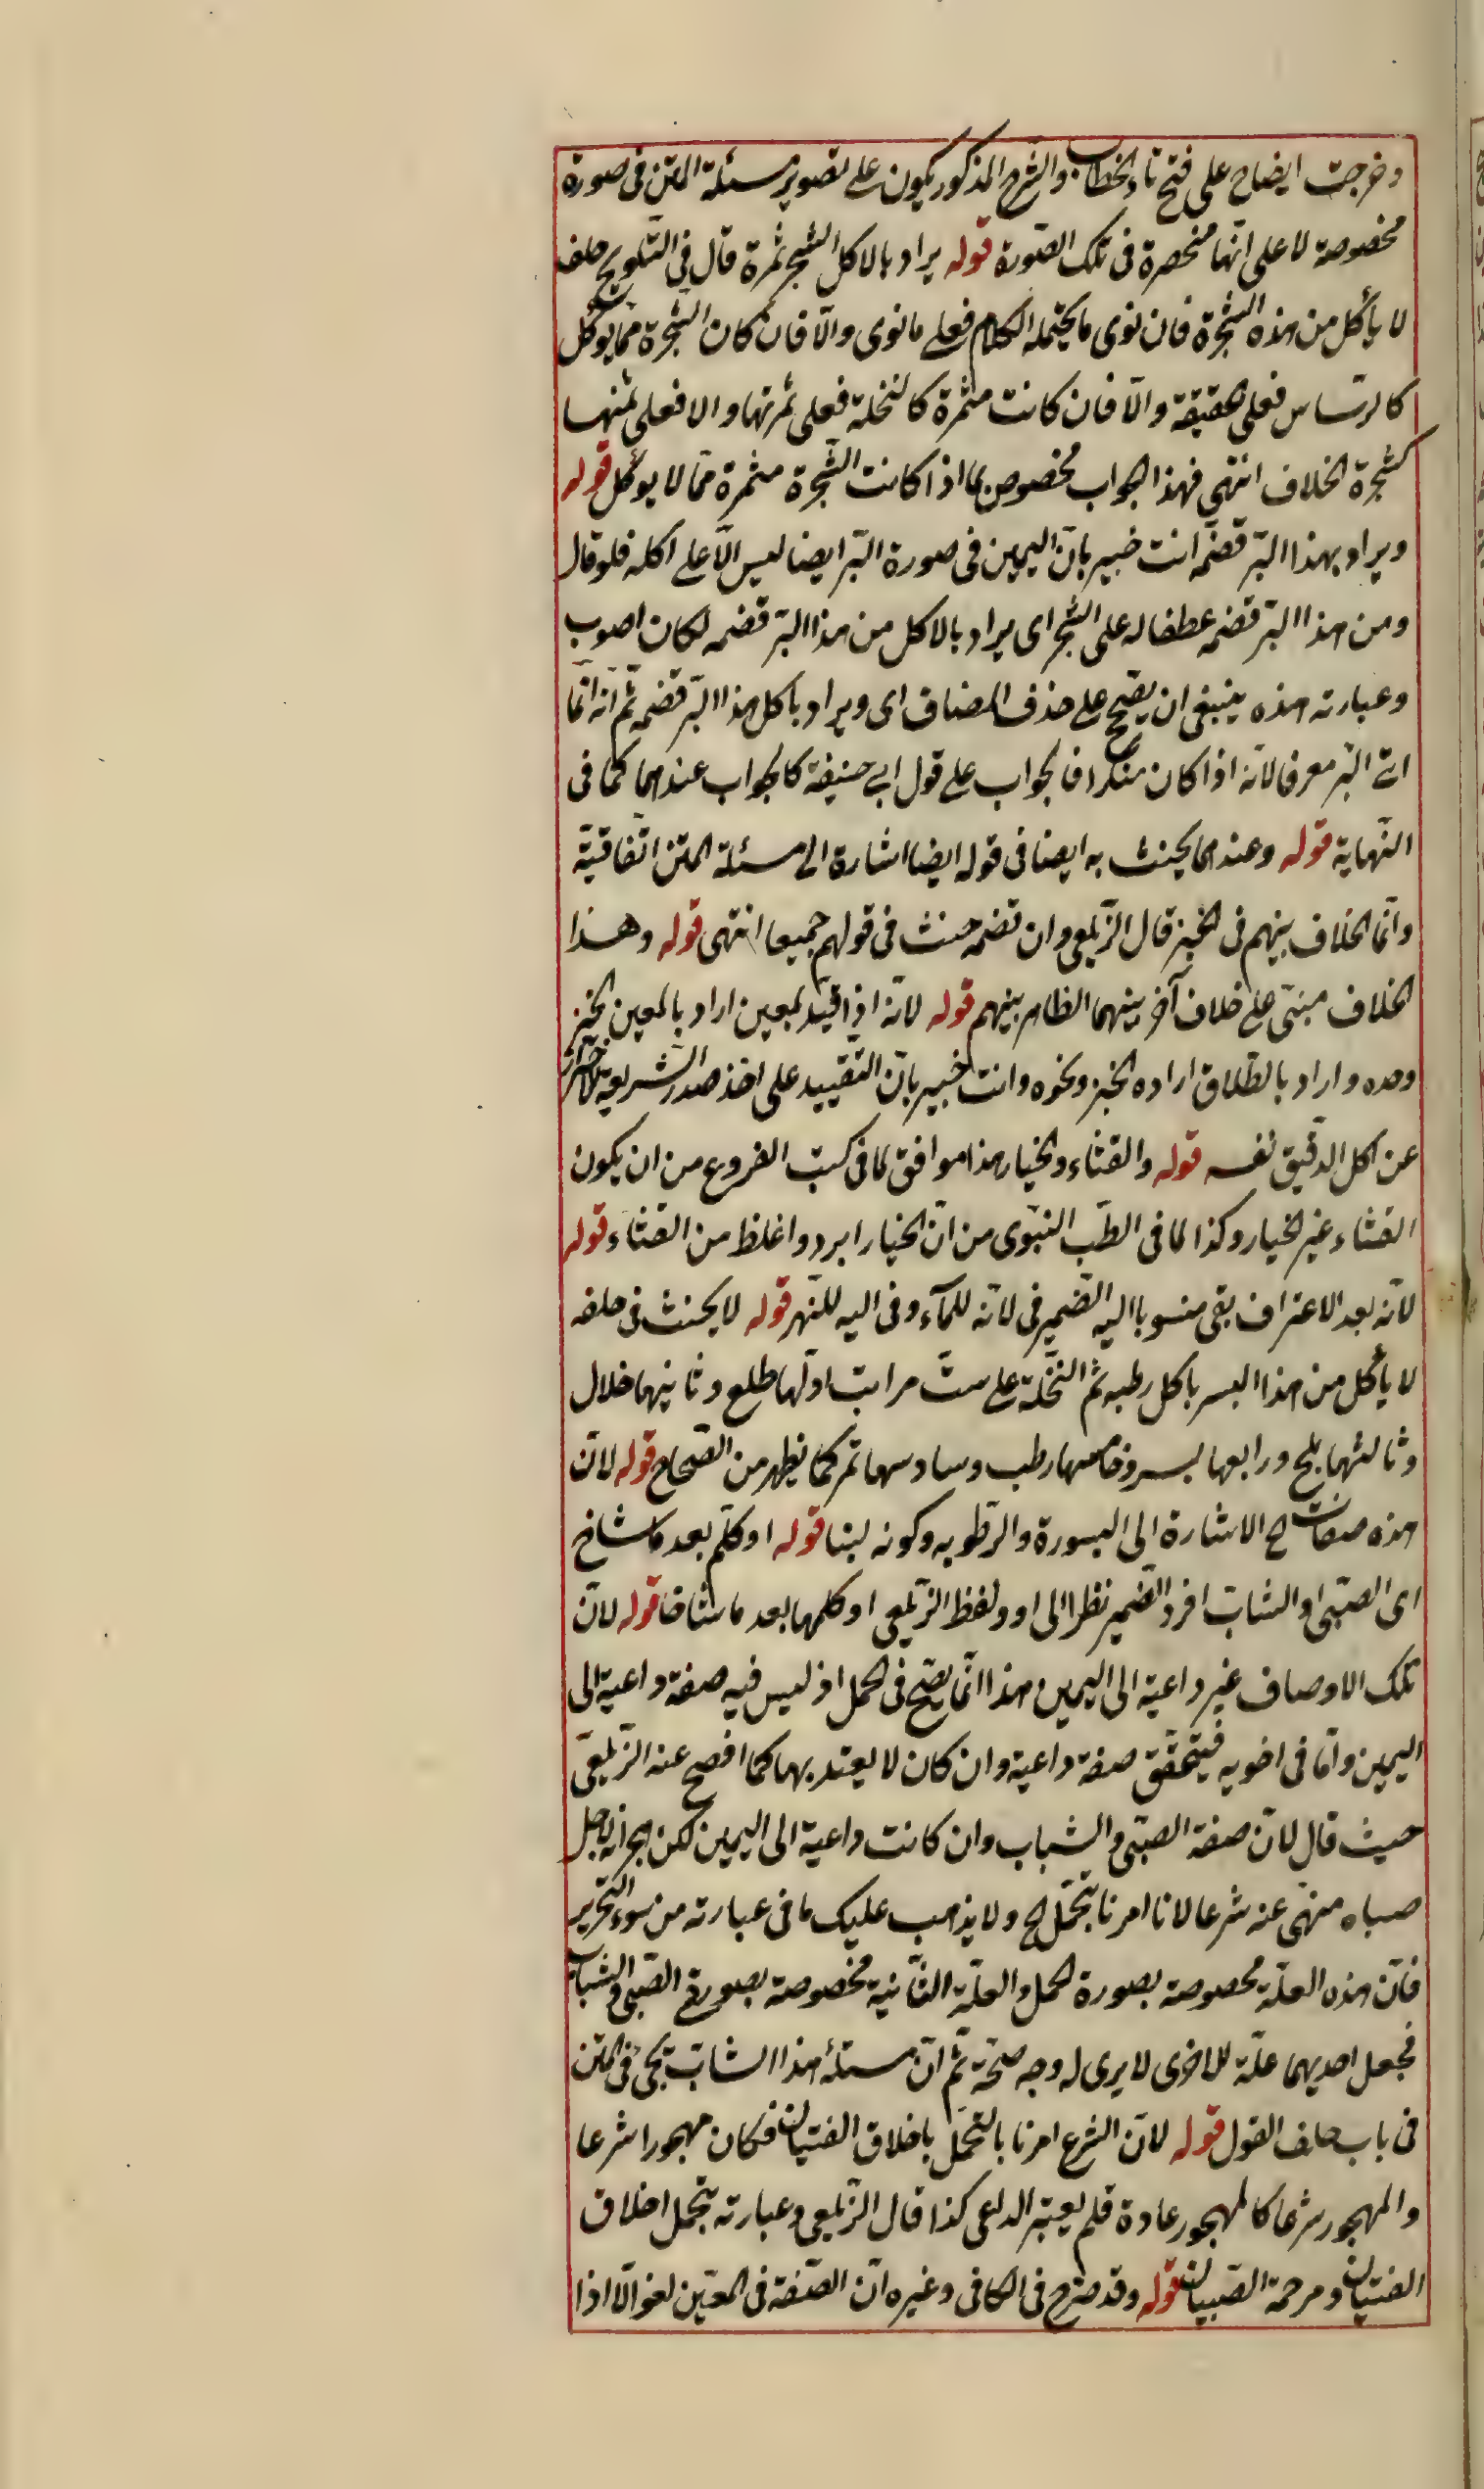 وخرجت ايضاح على فتح تاء الخطاب والشرح المذكور يكون على تصوير مسئلة المتن فى صورة
مخصوصة لا على انّها منحصرة فى تلك الصّورة قوله يراد بالاكل الشّجر ثمرة قال فى التّلويح حلف
لا يأكل من هذه الشّجرة فان نوى ما يحتمله الكلام فعلى ما نوى والّا فان كان الشّجرة ممّا يوكل
كالرّيباس فعلى الحقيقة والّا فان كانت مثمرة كالنخلة فعلى ثمرتها والا فعلى ثمنها
كشجرة الخلاف انتهى فهذا الجواب مخصوص بما اذا كانت الشّجرة مثمرة ممّا لا يوكل قوله
ويراد بهذا البرّ قضمه انت خبير بانّ اليمين فى صورة البّر ايضا ليس الّا على اكله فلو قال
ومن هذا البرّ قضمه عطفا له على الشّجر اى يراد بالاكل من هذا البرّ قضمه لكان اصوب
وعبارته هذه ينبغى ان يصّح على حذف المضاف اى ويراد باكل هذا البرّ قضمه ثمّ انّه انّما
اتى البّر معرفا لانّه اذا كان منكرا فالجواب على قول ابى حنيفة كالجواب عندهما كما فى
النّهاية قوله وعندهما يحنث به ايضا فى قوله ايضا اشارة الى مسئلة المتن اتّفاقيّة
وانّما الخلاف بينهم فى الخبز قال الزّيلعى وان قضمه حنث فى قولهم جميعا انتهى قوله وهذا
الخلاف مبنىّ على خلاف آخر بينهما الظاهر بينهم قوله لانّه اذا قيّد بمعين اراد بالمعين الخبز
وحده واراد بالطلاق اراده الخبز ونحوه وانت خبير بانّ التّقييد على اخذ صدر الشّريعة للاحتراز
عن اكل الدّقيق نفسه قوله والقثاء والخيار هذا موافق لما فى كتب الفروع من ان يكون
القثاء غير الخيار وكذا لما فى الطّب النّبوى من انّ الخيار ابرد واغلظ من القثاء قوله
لانّه بعد الاغتراف بقى منسوبا اليه الضّمير فى لانّه للمآء وفى اليه للنّهر قوله لا يحنث فى حلفه
لا يأكل من هذا البسر باكل رطبه ثم النّخلة على ستّ مراتب اوّلها طلع وثانيها خلال
وثالثها بلح ورابعها بسر وخامسها رطب وسادسها تمر كما يظهر من الصّحاح قوله لانّ
هذه صفات ح الاشارة الى البسورة والرّطوبه وكونه لبنا قوله او كلّم بعد ما شاخ
اى الصّبّى او الشابّ افرد الضّمير نظرا الى او ولفظ الزّيلعى او كلمها بعد ما شاخا قوله لانّ
تلك الاوصاف غير داعية الى اليمين وهذا انّما يصّح فى الحمل اذ ليس فيه صفة داعية الى
اليمين وامّا فى اخويه فيتحقّق صفة داعية وان كان لا يعتدّ بها كما افصح عنه الزّيلعىّ
حيث قال لانّ صفة الصّبّى والشباب وان كانت داعية الى اليمين لكن هجرانه لاجل
صباه منهىّ عنه شرعا لانا امرنا بتحمّل ح ولا يذهب عليك ما فى عبارته من سوء التّحرير
فانّ هذه العلّة مخصوصة بصورة الحمل والعلّة الثّانية مخصوصة بصورة الصّبى والشباب
فجعل احديهما علّة للاخرى لا يرى له وجه صحّة ثمّ انّ مسئلة هذا الشابّ تجئ فى المتن
فى باب حلف القول قوله لانّ الشرع امرنا بالتّحمّل باخلاق الفتيان فكان مهجورا شرعا
والمهجور شرعا كالمهجور عادة فلم يعتبر الداعى كذا قال الزّيلعى وعبارته بتحمل اخلاق
الفتيان ومرحمة الصّبيان قوله وقد صرّح فى الكافى وغيره انّ الصّفة فى المعيّن لغو الّا اذا